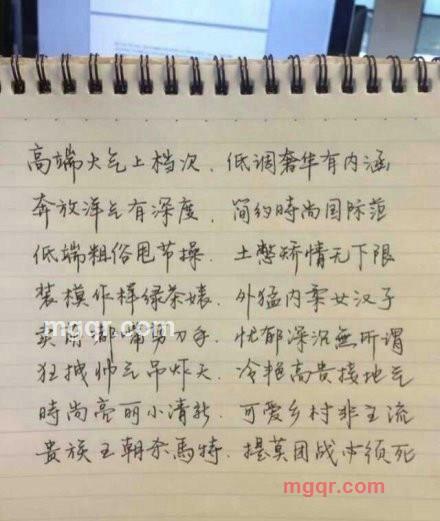 高端大气上档次. 低调奢华有内涵
奔放洋气有深度. 简约時尚国际范
低端粗俗甩节操. 土憋矫情无下限
装模作样绿茶婊. 外猛内柔女汉子
mgqr.com
卖萌嘟嘴剪刀手. 忧郁深沉無所谓
狂拽帅气吊炸天. 冷艳高贵接地气
時尚亮丽小清新. 可爱乡村非主流
贵族王朝杀馬特. 提莫团战必须死
mgqr.com